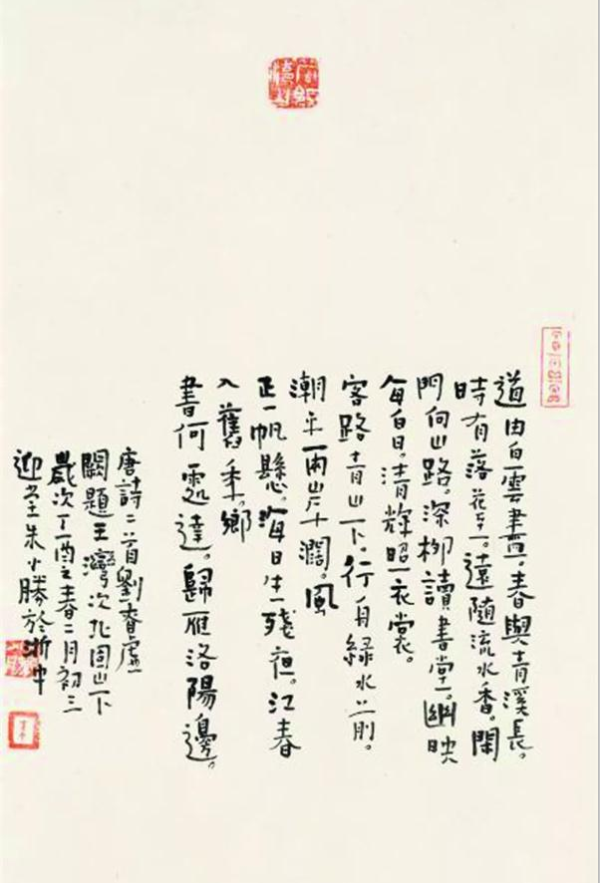 道由白雲盡。春與青溪長。
時有落花至。遠隨流水香。閑
門向山路。深柳讀書堂。幽映
每白日。清輝照衣裳。
客路青山下。行舟緑水前。
潮平兩岸闊。風
正一帆懸。海日生殘夜。江春
入舊年。鄉
書何處達。歸雁洛陽邊。
唐詩二首劉眘虛
闕題王灣次北固山下
歲次丁酉之春二月初三
迎堂朱小勝於浙中